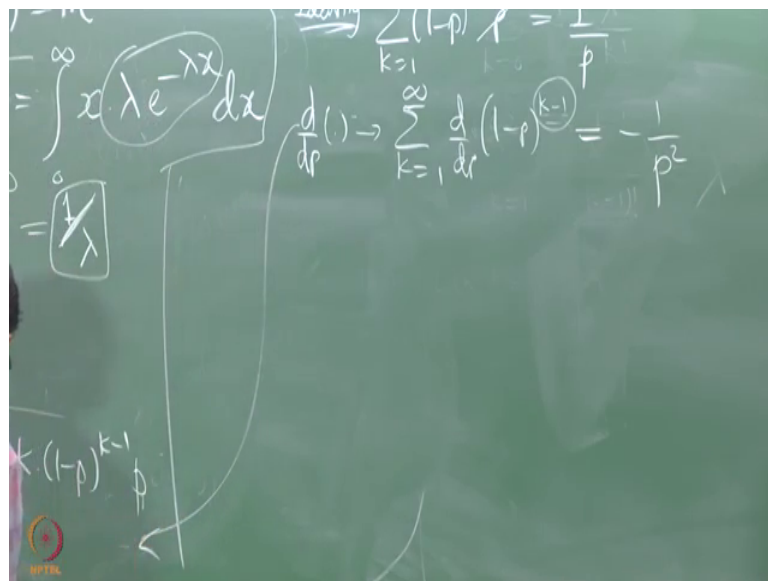 = ∫_0^∞ x λe^{-λx} dx
= 1/λ
k.(1-p)^{k-1} p
∑_{k=1} (1-p) = 1/p
d/dp (.) → ∑_{k=1}^∞ d/dp (1-p)^{k-1} = - 1/p²
NPTEL